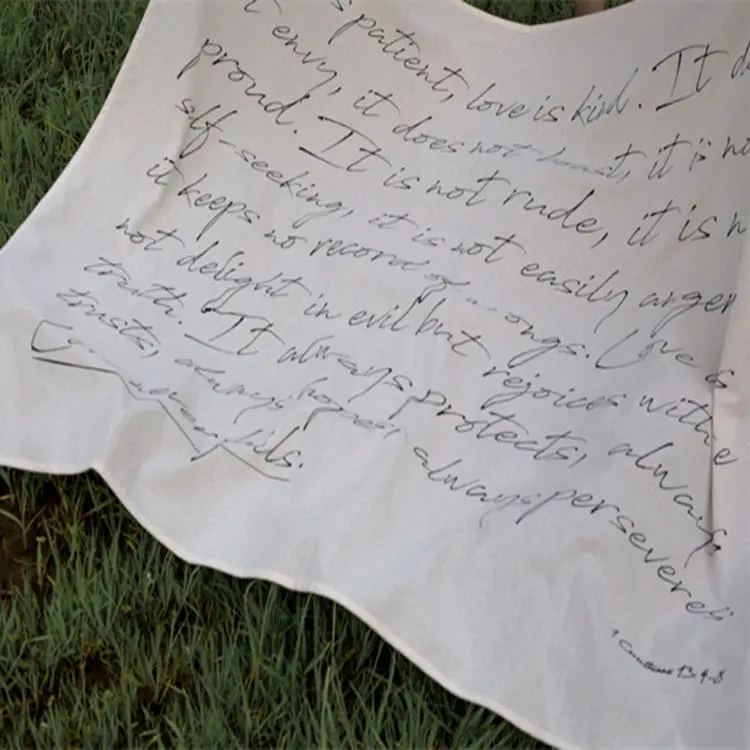 patient, love is kind. It d
t envy, it does not boast, it is no
proud. It is not rude, it is n
self-seeking, it is not easily anger
it keeps no record of wrongs. Love is
not delight in evil but rejoices with e
truth. It always protects, always
trusts, always hopes, always perseveres
Love never fails.
1 Corinthians 13:4-8